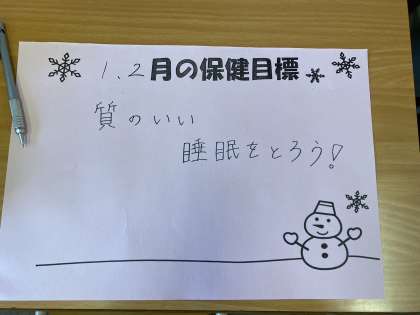 1.2月の保健目標
質のいい
睡眠をとろう!